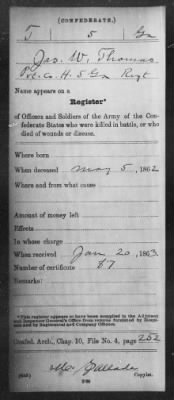 (CONFEDERATE.)
T 5 Ga
Jas. W. Thomas
Pvt. Co. H. 5 Ga Regt
Name appears on a
Register*
of Officers and Soldiers of the Army of the Confederate States who were killed in battle, or who
died of wounds or disease.
Where born
When deceased May 5, 1862
Where and from what cause
Amount of money left
Effects
In whose charge
When received Jan 20, 1863
Number of certificate 87
Remarks:
*This register appears to have been compiled in the Adjutant
and Inspector General's Office from returns furnished by Hospitals
and by Regimental and Company Officers.
Confed. Arch., Chap. 10, File No. 4, page 252
Copyist.